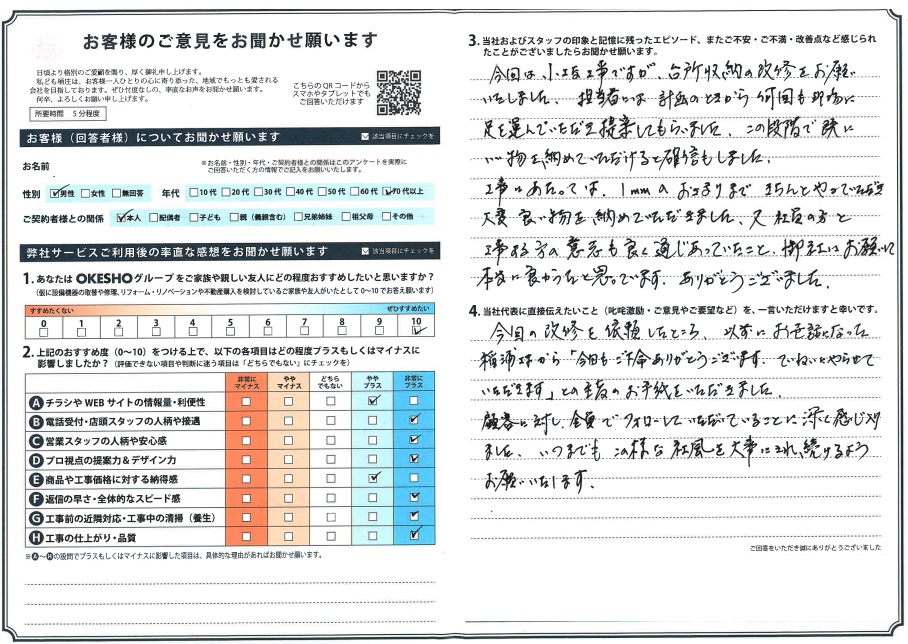 お客様のご意見をお聞かせ願います
日頃より格別のご愛顧を賜り、厚く御礼申し上げます。
私ども桶庄は、お客様一人ひとりの心に寄り添った、地域でもっとも愛される
会社を目指しております。ぜひ忖度なしの、率直なお声をお聞かせください。
何卒、よろしくお願い申し上げます。
所要時間 5分程度
こちらのQRコードから
スマホやタブレットでも
ご回答いただけます
お客様（回答者様）についてお聞かせ願います
該当項目にチェックを
お名前
※お名前・性別・年代・ご契約者様との関係はこのアンケートを実際に
ご回答いただく方の情報でご記入をお願いいたします。
性別 男性 女性 無回答 年代 10代 20代 30代 40代 50代 60代 70代以上
ご契約者様との関係 本人 配偶者 子ども 親（義親含む） 兄弟姉妹 祖父母 その他
弊社サービスご利用後の率直な感想をお聞かせ願います
該当項目にチェックを
1. あなたは OKESHOグループをご家族や親しい友人にどの程度おすすめしたいと思いますか？
（仮に設備機器の取替や修理、リフォーム・リノベーションや不動産購入を検討しているご家族や友人がいたとして0〜10でお答え願います）
すすめたくない ぜひすすめたい
0 1 2 3 4 5 6 7 8 9 10
2. 上記のおすすめ度（0〜10）をつける上で、以下の各項目はどの程度プラスもしくはマイナスに
影響しましたか？（評価できない項目や判断に迷う項目は「どちらでもない」にチェックを）
非常にマイナス ややマイナス どちらでもない ややプラス 非常にプラス
A チラシやWEBサイトの情報量・利便性
B 電話受付・店頭スタッフの人柄や接遇
C 営業スタッフの人柄や安心感
D プロ視点の提案力＆デザイン力
E 商品や工事価格に対する納得感
F 返信の早さ・全体的なスピード感
G 工事前の近隣対応・工事中の清掃（養生）
H 工事の仕上がり・品質
※A〜Hの設問でプラスもしくはマイナスに影響した項目は、具体的な理由があればお聞かせ願います。
3. 当社およびスタッフの印象と記憶に残ったエピソード、またご不安・ご不満・改善点など感じられ
たことがございましたらお聞かせ願います。
今回は、小工事ですが、台所収納の改修をお願い
いたしました。担当者には計画のときから何回も現場に
足を運んでいただき提案してもらいました。この段階で既に
いい物を納めていただけると確信もしました。
工事にあたっては、1mmのおさまりまできちんとやっていただき
大変良い物を納めていただきました。又社員の方と
工事する方の意志も良く通じあっていたこと、御社にお願いして
本当に良かったと思っています。ありがとうございました。
4. 当社代表に直接伝えたいこと（叱咤激励・ご意見やご要望など）を、一言いただけますと幸いです。
今回の改修を依頼したところ、以前にお世話になった
様から「今回もご下命ありがとうございます。ていねいにやらせて
いただきます」との主旨のお手紙をいただきました。
顧客に対し、全員でフォローしていただいていることに深く感じ入り
ました。いつまでもこの様な社風を大事にされ、続けるよう
お願いいたします。
ご回答をいただき誠にありがとうございました